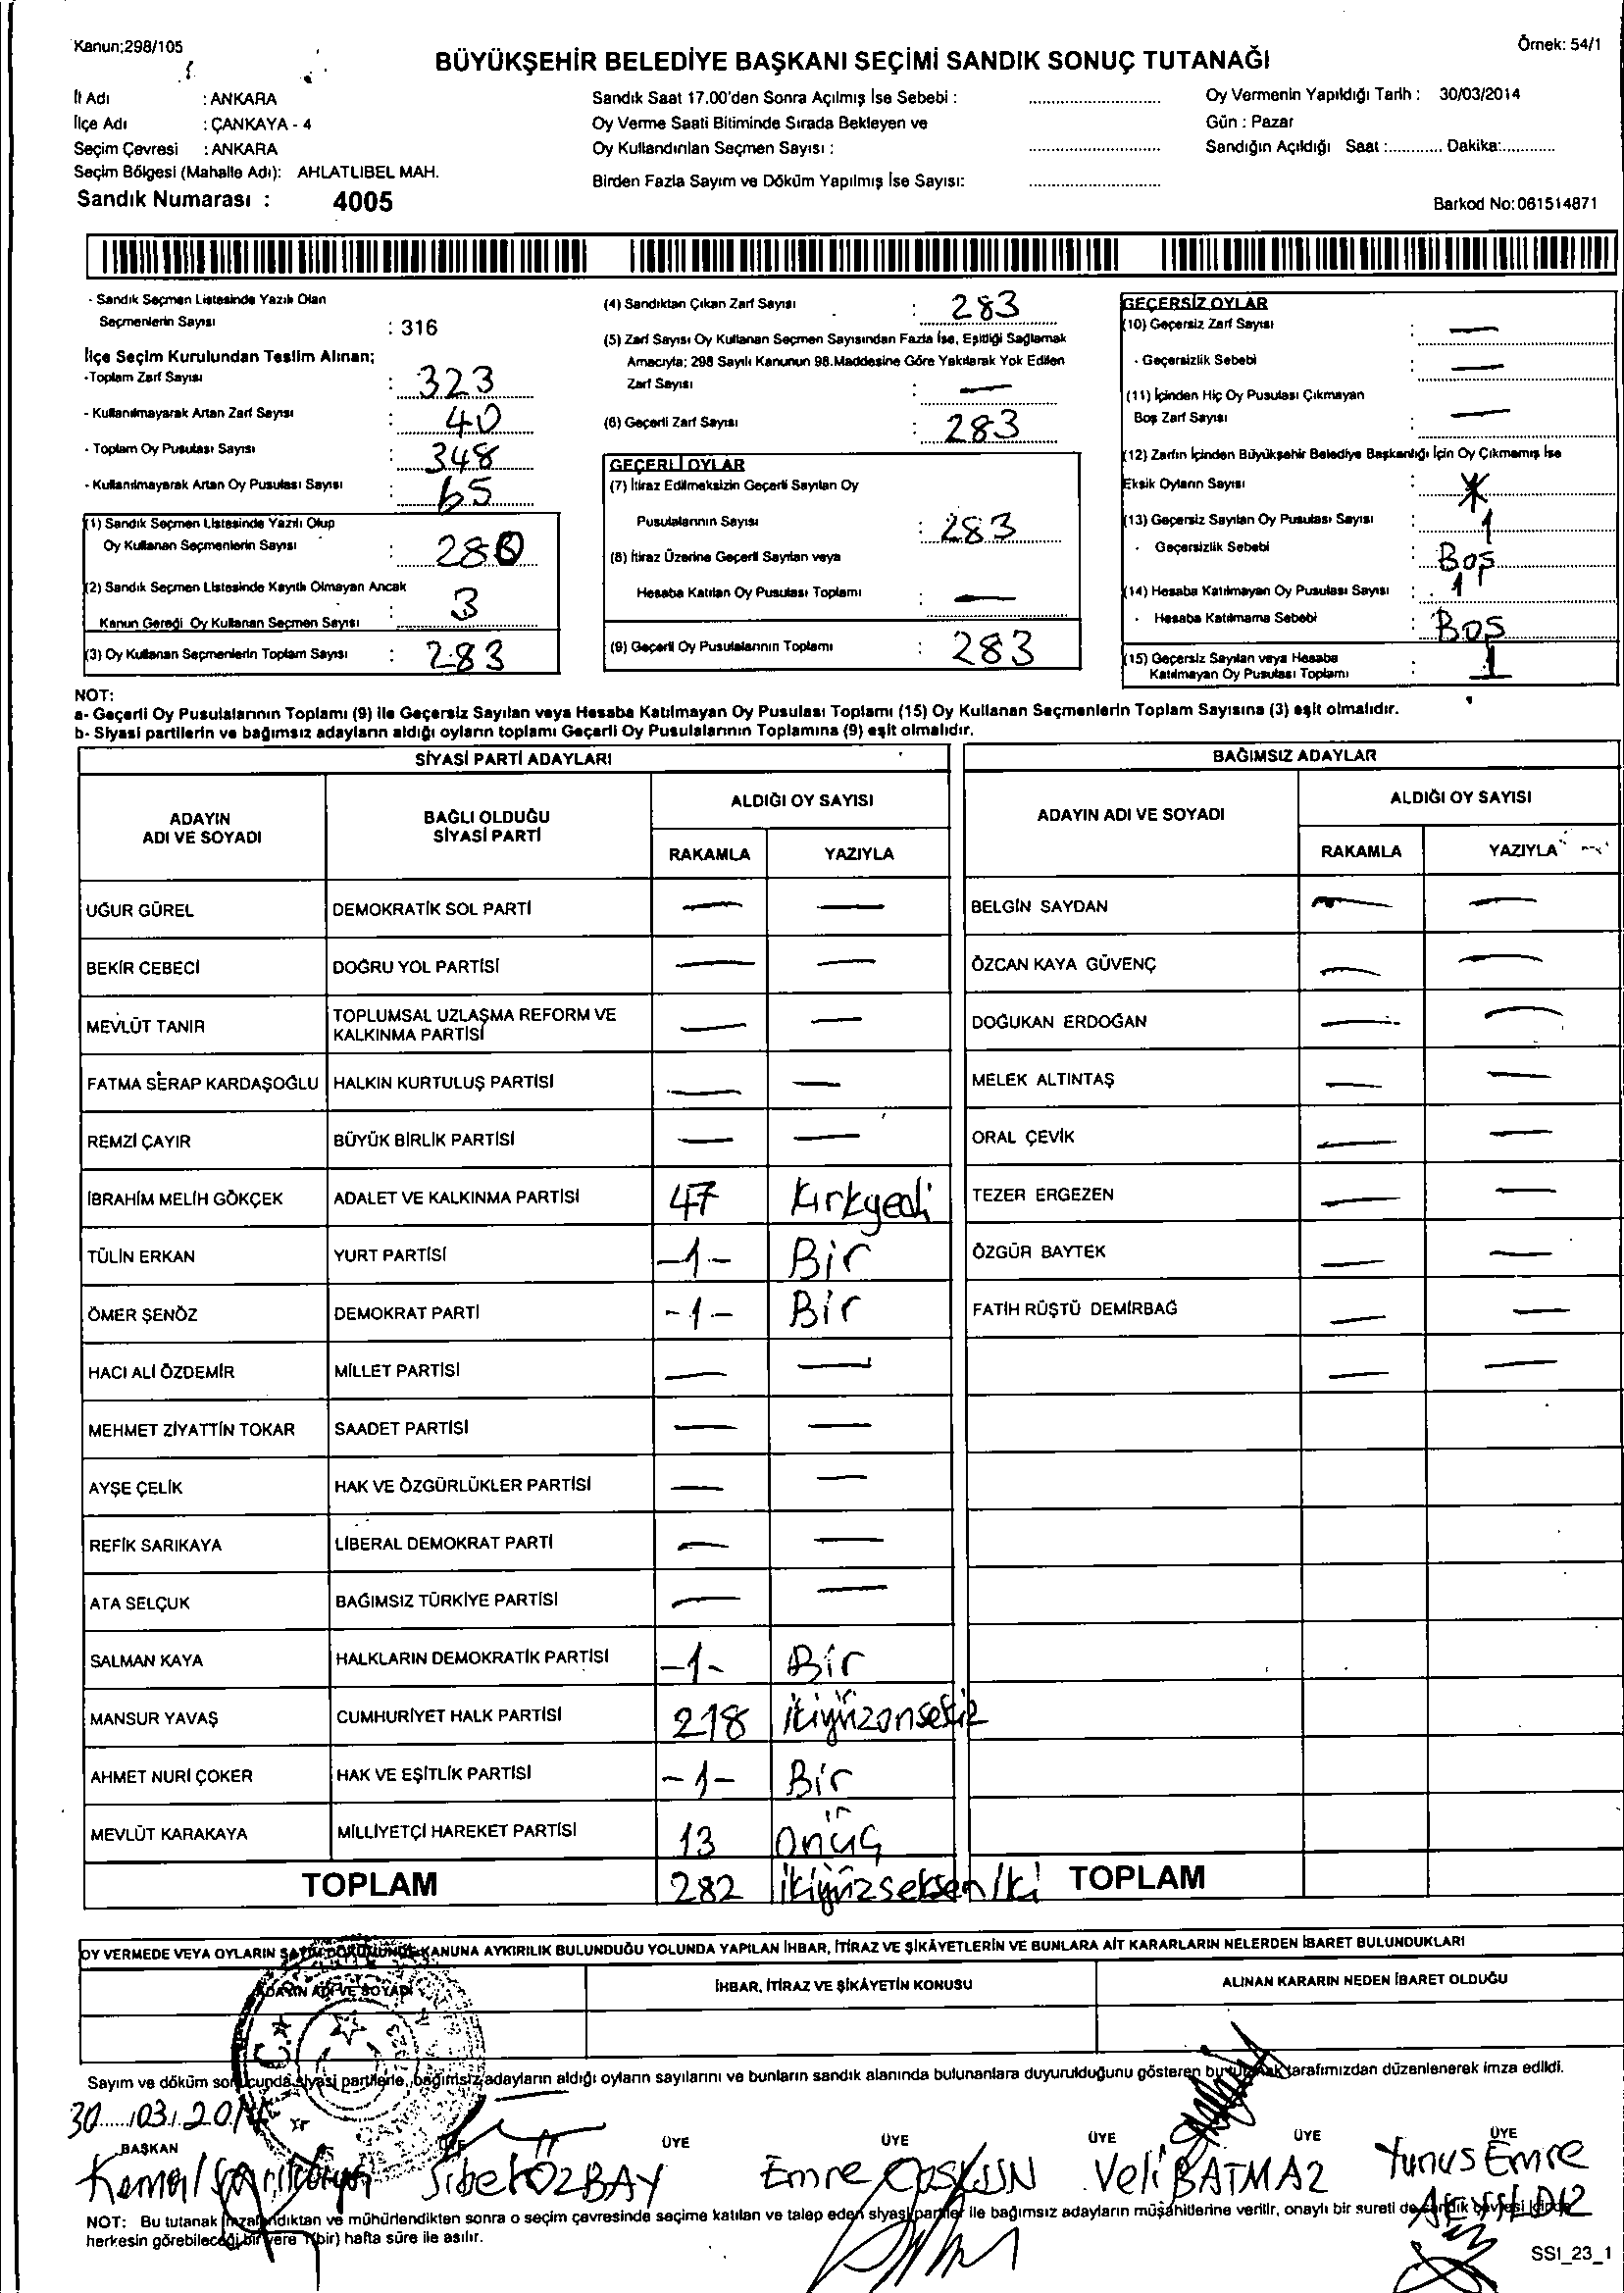 Kanun;298/105
Örnek: 54/1
BÜYÜKŞEHİR BELEDİYE BAŞKANI SEÇİMİ SANDIK SONUÇ TUTANAĞI
İl Adı : ANKARA
İlçe Adı : ÇANKAYA - 4
Seçim Çevresi : ANKARA
Seçim Bölgesi (Mahalle Adı): AHLATLIBEL MAH.
Sandık Numarası : 4005
Sandık Saat 17.00'den Sonra Açılmış İse Sebebi :
Oy Verme Saati Bitiminde Sırada Bekleyen ve
Oy Kullandırılan Seçmen Sayısı :
Birden Fazla Sayım ve Döküm Yapılmış İse Sayısı:
Oy Vermenin Yapıldığı Tarih : 30/03/2014
Gün : Pazar
Sandığın Açıldığı Saat :............ Dakika:............
Barkod No:061514871
- Sandık Seçmen Listesinde Yazılı Olan
Seçmenlerin Sayısı : 316
İlçe Seçim Kurulundan Teslim Alınan;
-Toplam Zarf Sayısı : 323
- Kullanılmayarak Artan Zarf Sayısı : 40
- Toplam Oy Pusulası Sayısı : 348
- Kullanılmayarak Artan Oy Pusulası Sayısı : 65
(1) Sandık Seçmen Listesinde Yazılı Olup
Oy Kullanan Seçmenlerin Sayısı : 280
(2) Sandık Seçmen Listesinde Kayıtlı Olmayan Ancak
Kanun Gereği Oy Kullanan Seçmen Sayısı : 3
(3) Oy Kullanan Seçmenlerin Toplam Sayısı : 283
(4) Sandıktan Çıkan Zarf Sayısı : 283
(5) Zarf Sayısı Oy Kullanan Seçmen Sayısından Fazla İse, Eşitliği Sağlamak
Amacıyla; 298 Sayılı Kanunun 98.Maddesine Göre Yakılarak Yok Edilen
Zarf Sayısı : —
(6) Geçerli Zarf Sayısı : 283
GEÇERLİ OYLAR
(7) İtiraz Edilmeksizin Geçerli Sayılan Oy
Pusulalarının Sayısı : 283
(8) İtiraz Üzerine Geçerli Sayılan veya
Hesaba Katılan Oy Pusulası Toplamı : —
(9) Geçerli Oy Pusulalarının Toplamı : 283
GEÇERSİZ OYLAR
(10) Geçersiz Zarf Sayısı : —
- Geçersizlik Sebebi : —
(11) İçinden Hiç Oy Pusulası Çıkmayan
Boş Zarf Sayısı : —
(12) Zarfın İçinden Büyükşehir Belediye Başkanlığı İçin Oy Çıkmamış İse
Eksik Oyların Sayısı :
(13) Geçersiz Sayılan Oy Pusulası Sayısı : 1
- Geçersizlik Sebebi : Boş
(14) Hesaba Katılmayan Oy Pusulası Sayısı : 1
- Hesaba Katılmama Sebebi : Boş
(15) Geçersiz Sayılan veya Hesaba
Katılmayan Oy Pusulası Toplamı : 1
NOT:
a- Geçerli Oy Pusulalarının Toplamı (9) ile Geçersiz Sayılan veya Hesaba Katılmayan Oy Pusulası Toplamı (15) Oy Kullanan Seçmenlerin Toplam Sayısına (3) eşit olmalıdır.
b- Siyasi partilerin ve bağımsız adayların aldığı oyların toplamı Geçerli Oy Pusulalarının Toplamına (9) eşit olmalıdır.
SİYASİ PARTİ ADAYLARI
ADAYIN
ADI VE SOYADI
BAĞLI OLDUĞU
SİYASİ PARTİ
ALDIĞI OY SAYISI
RAKAMLA YAZIYLA
UĞUR GÜREL DEMOKRATİK SOL PARTİ — —
BEKİR CEBECİ DOĞRU YOL PARTİSİ — —
MEVLÜT TANIR TOPLUMSAL UZLAŞMA REFORM VE
KALKINMA PARTİSİ — —
FATMA SERAP KARDAŞOĞLU HALKIN KURTULUŞ PARTİSİ — —
REMZİ ÇAYIR BÜYÜK BİRLİK PARTİSİ — —
İBRAHİM MELİH GÖKÇEK ADALET VE KALKINMA PARTİSİ 47 Kırkyedi
TÜLİN ERKAN YURT PARTİSİ -1- Bir
ÖMER ŞENÖZ DEMOKRAT PARTİ -1- Bir
HACI ALİ ÖZDEMİR MİLLET PARTİSİ — —
MEHMET ZİYATTİN TOKAR SAADET PARTİSİ — —
AYŞE ÇELİK HAK VE ÖZGÜRLÜKLER PARTİSİ — —
REFİK SARIKAYA LİBERAL DEMOKRAT PARTİ — —
ATA SELÇUK BAĞIMSIZ TÜRKİYE PARTİSİ — —
SALMAN KAYA HALKLARIN DEMOKRATİK PARTİSİ -1- Bir
MANSUR YAVAŞ CUMHURİYET HALK PARTİSİ 218 ikiyüzonsekiz
AHMET NURİ ÇOKER HAK VE EŞİTLİK PARTİSİ -1- Bir
MEVLÜT KARAKAYA MİLLİYETÇİ HAREKET PARTİSİ 13 Onüç
TOPLAM 282 ikiyüzseksen iki
BAĞIMSIZ ADAYLAR
ADAYIN ADI VE SOYADI
ALDIĞI OY SAYISI
RAKAMLA YAZIYLA
BELGİN SAYDAN — —
ÖZCAN KAYA GÜVENÇ — —
DOĞUKAN ERDOĞAN — —
MELEK ALTINTAŞ — —
ORAL ÇEVİK — —
TEZER ERGEZEN — —
ÖZGÜR BAYTEK — —
FATİH RÜŞTÜ DEMİRBAĞ — —
— —
TOPLAM
OY VERMEDE VEYA OYLARIN SAYIM DÖKÜMÜNDE KANUNA AYKIRILIK BULUNDUĞU YOLUNDA YAPILAN İHBAR, İTİRAZ VE ŞİKÂYETLERİN VE BUNLARA AİT KARARLARIN NELERDEN İBARET BULUNDUKLARI
ADAYIN ADI VE SOYADI
İHBAR, İTİRAZ VE ŞİKÂYETİN KONUSU
ALINAN KARARIN NEDEN İBARET OLDUĞU
Sayım ve döküm sonucunda siyasi partilerle, bağımsız adayların aldığı oyların sayılarını ve bunların sandık alanında bulunanlara duyurulduğunu gösteren bu tutanak tarafımızdan düzenlenerek imza edildi.
30.../03/.2014
BAŞKAN ÜYE ÜYE ÜYE ÜYE ÜYE ÜYE
Kemal Sibel ÖZBAY Emre Veli BATMAZ Yunus Emre
AKYILDIZ
NOT: Bu tutanak imzalandıktan ve mühürlendikten sonra o seçim çevresinde seçime katılan ve talep eden siyasi partiler ile bağımsız adayların müşahitlerine verilir, onaylı bir sureti de sandık çevresi içinde
herkesin görebileceği bir yere 1(bir) hafta süre ile asılır.
SSI_23_1